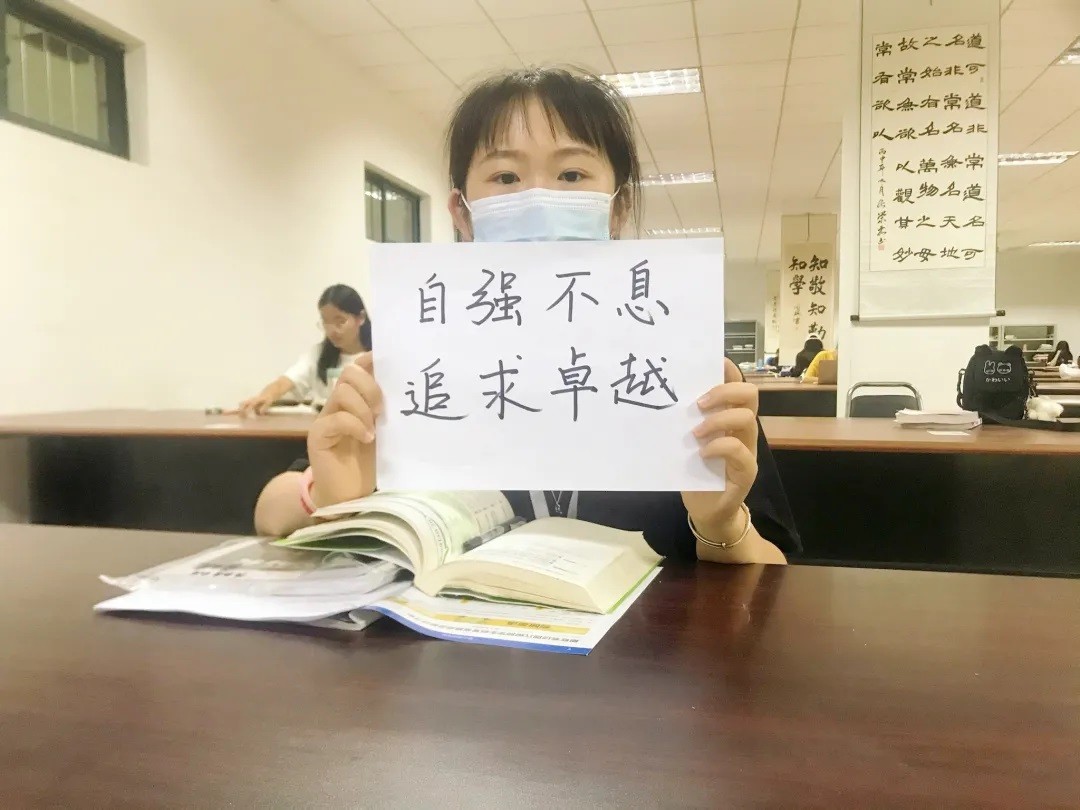 自强不息
追求卓越
道可道非常道名可
名非常名無名天地
之始有名萬物之母
故常無欲以觀其妙
常有欲以
知敬知勤
知學
かわいい